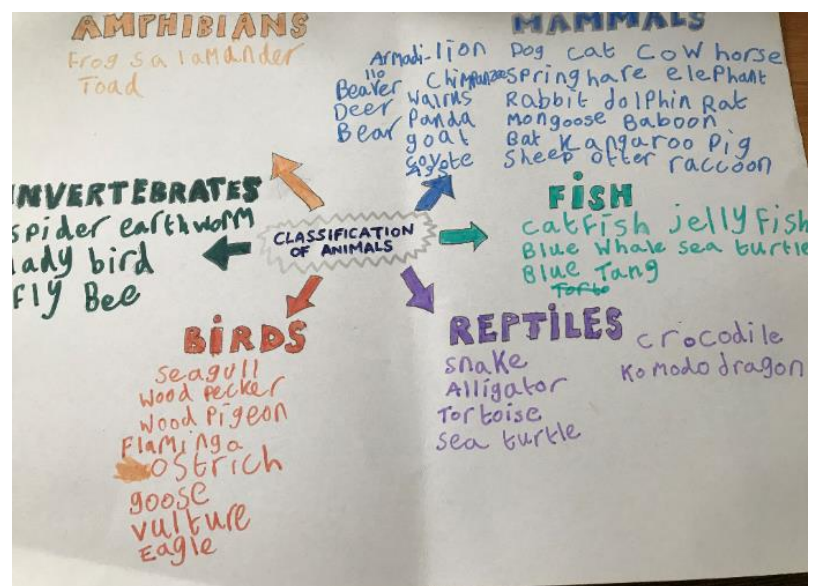 AMPHIBIANS
Frog salamander
Toad
MAMMALS
Armadi-
llo
lion
Beaver Chimpanzee
Deer Walrus
Bear Panda
goat
coyote
Dog cat cow horse
springhare elephant
Rabbit dolphin Rat
Mongoose Baboon
Bat Kangaroo Pig
Sheep otter raccoon
INVERTEBRATES
spider earthworm
lady bird
fly Bee
CLASSIFICATION
OF ANIMALS
FiSH
catfish jellyfish
Blue Whale sea turtle
Blue Tang
BiRDS
seagull
wood pecker
wood Pigeon
Flaminga
ostrich
goose
vulture
Eagle
REPTiLES
snake
Alligator
Tortoise
sea turtle
crocodile
Komodo dragon